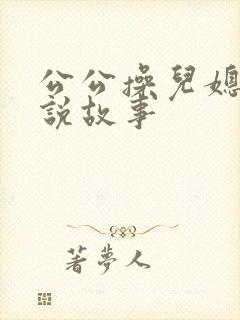 公公操兒媳
說故事
著夢人